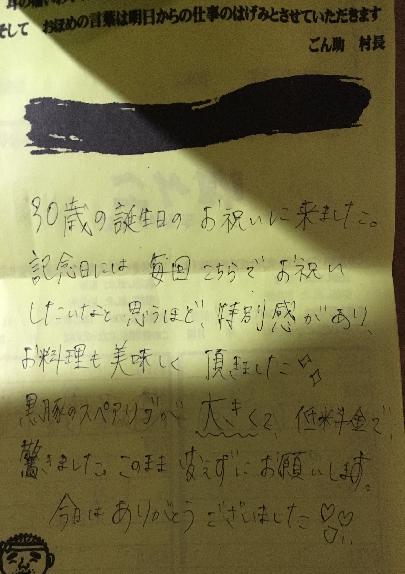 そして　おほめの言葉は明日からの仕事のはげみとさせていただきます
ごん助　村長
30歳の誕生日の お祝いに来ました。
記念日には 毎回 こちらで お祝い
したいなと 思うほど、特別感があり、
お料理も 美味しく 頂きました
黒豚のスペアリブが 大きくて、低料金で、
驚きました。このまま 変えずに お願いします。
今日は ありがとう ございました